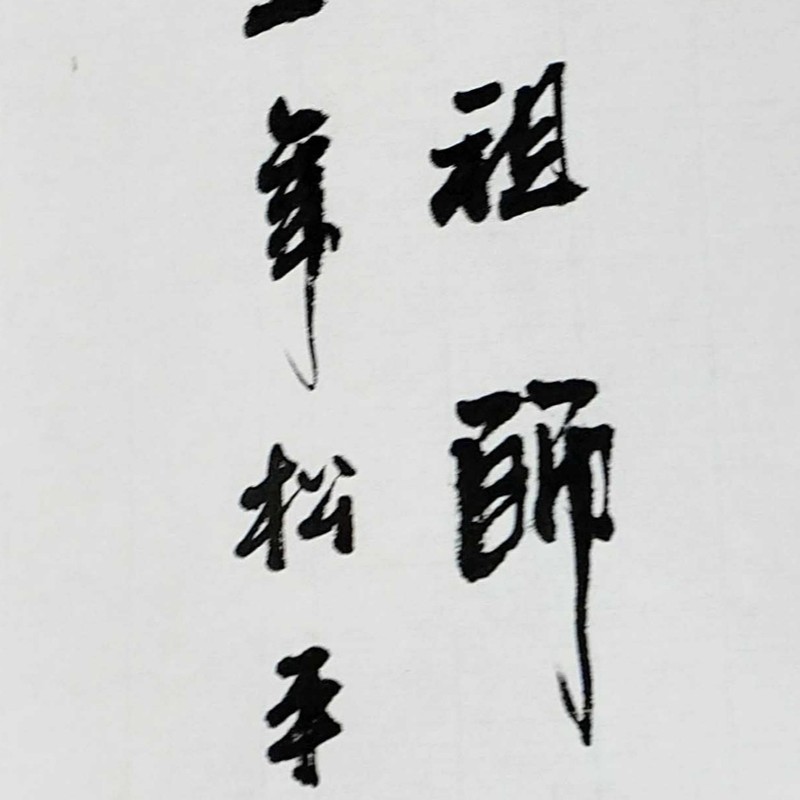 祖師
年松平